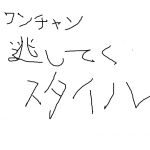 ワンチャン
逃してく
スタイル